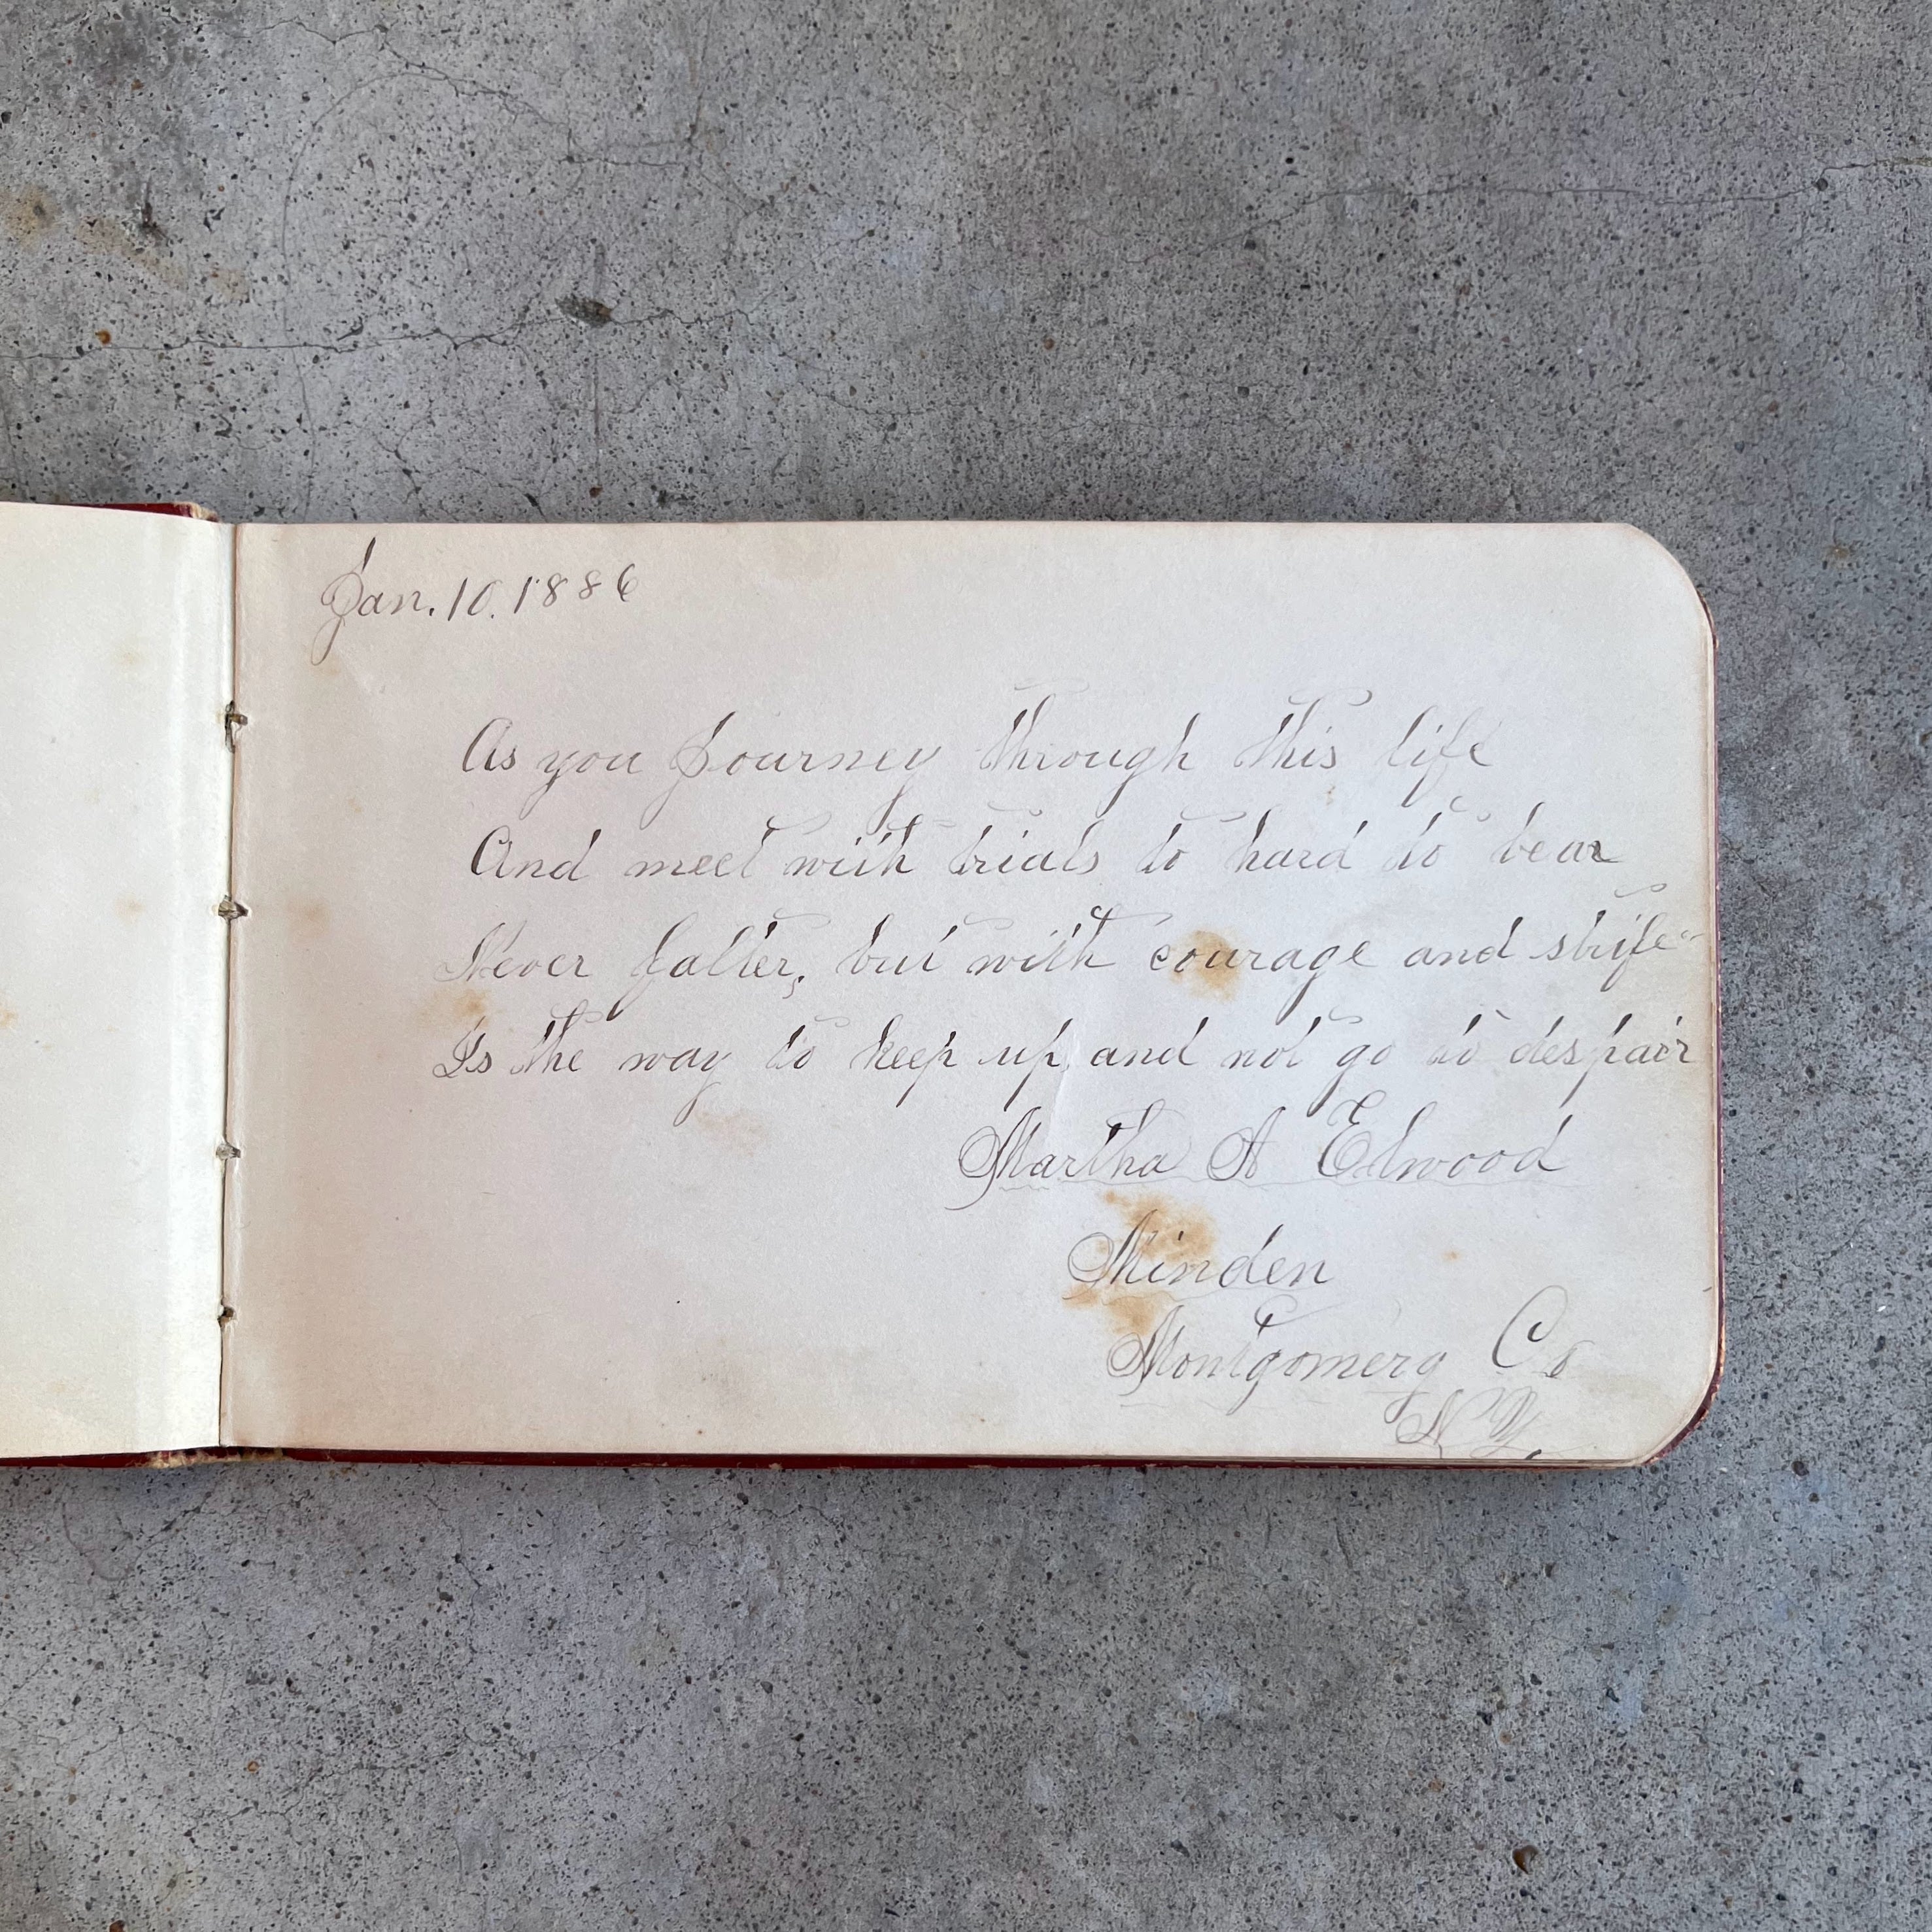 Jan. 10. 1886
As you Journey through this life
And meet with trials to hard to bear
Never falter, but with courage and strife
Is the way to keep up, and not go to despair
Martha A Elwood
Minden
Montgomery Co
N Y,